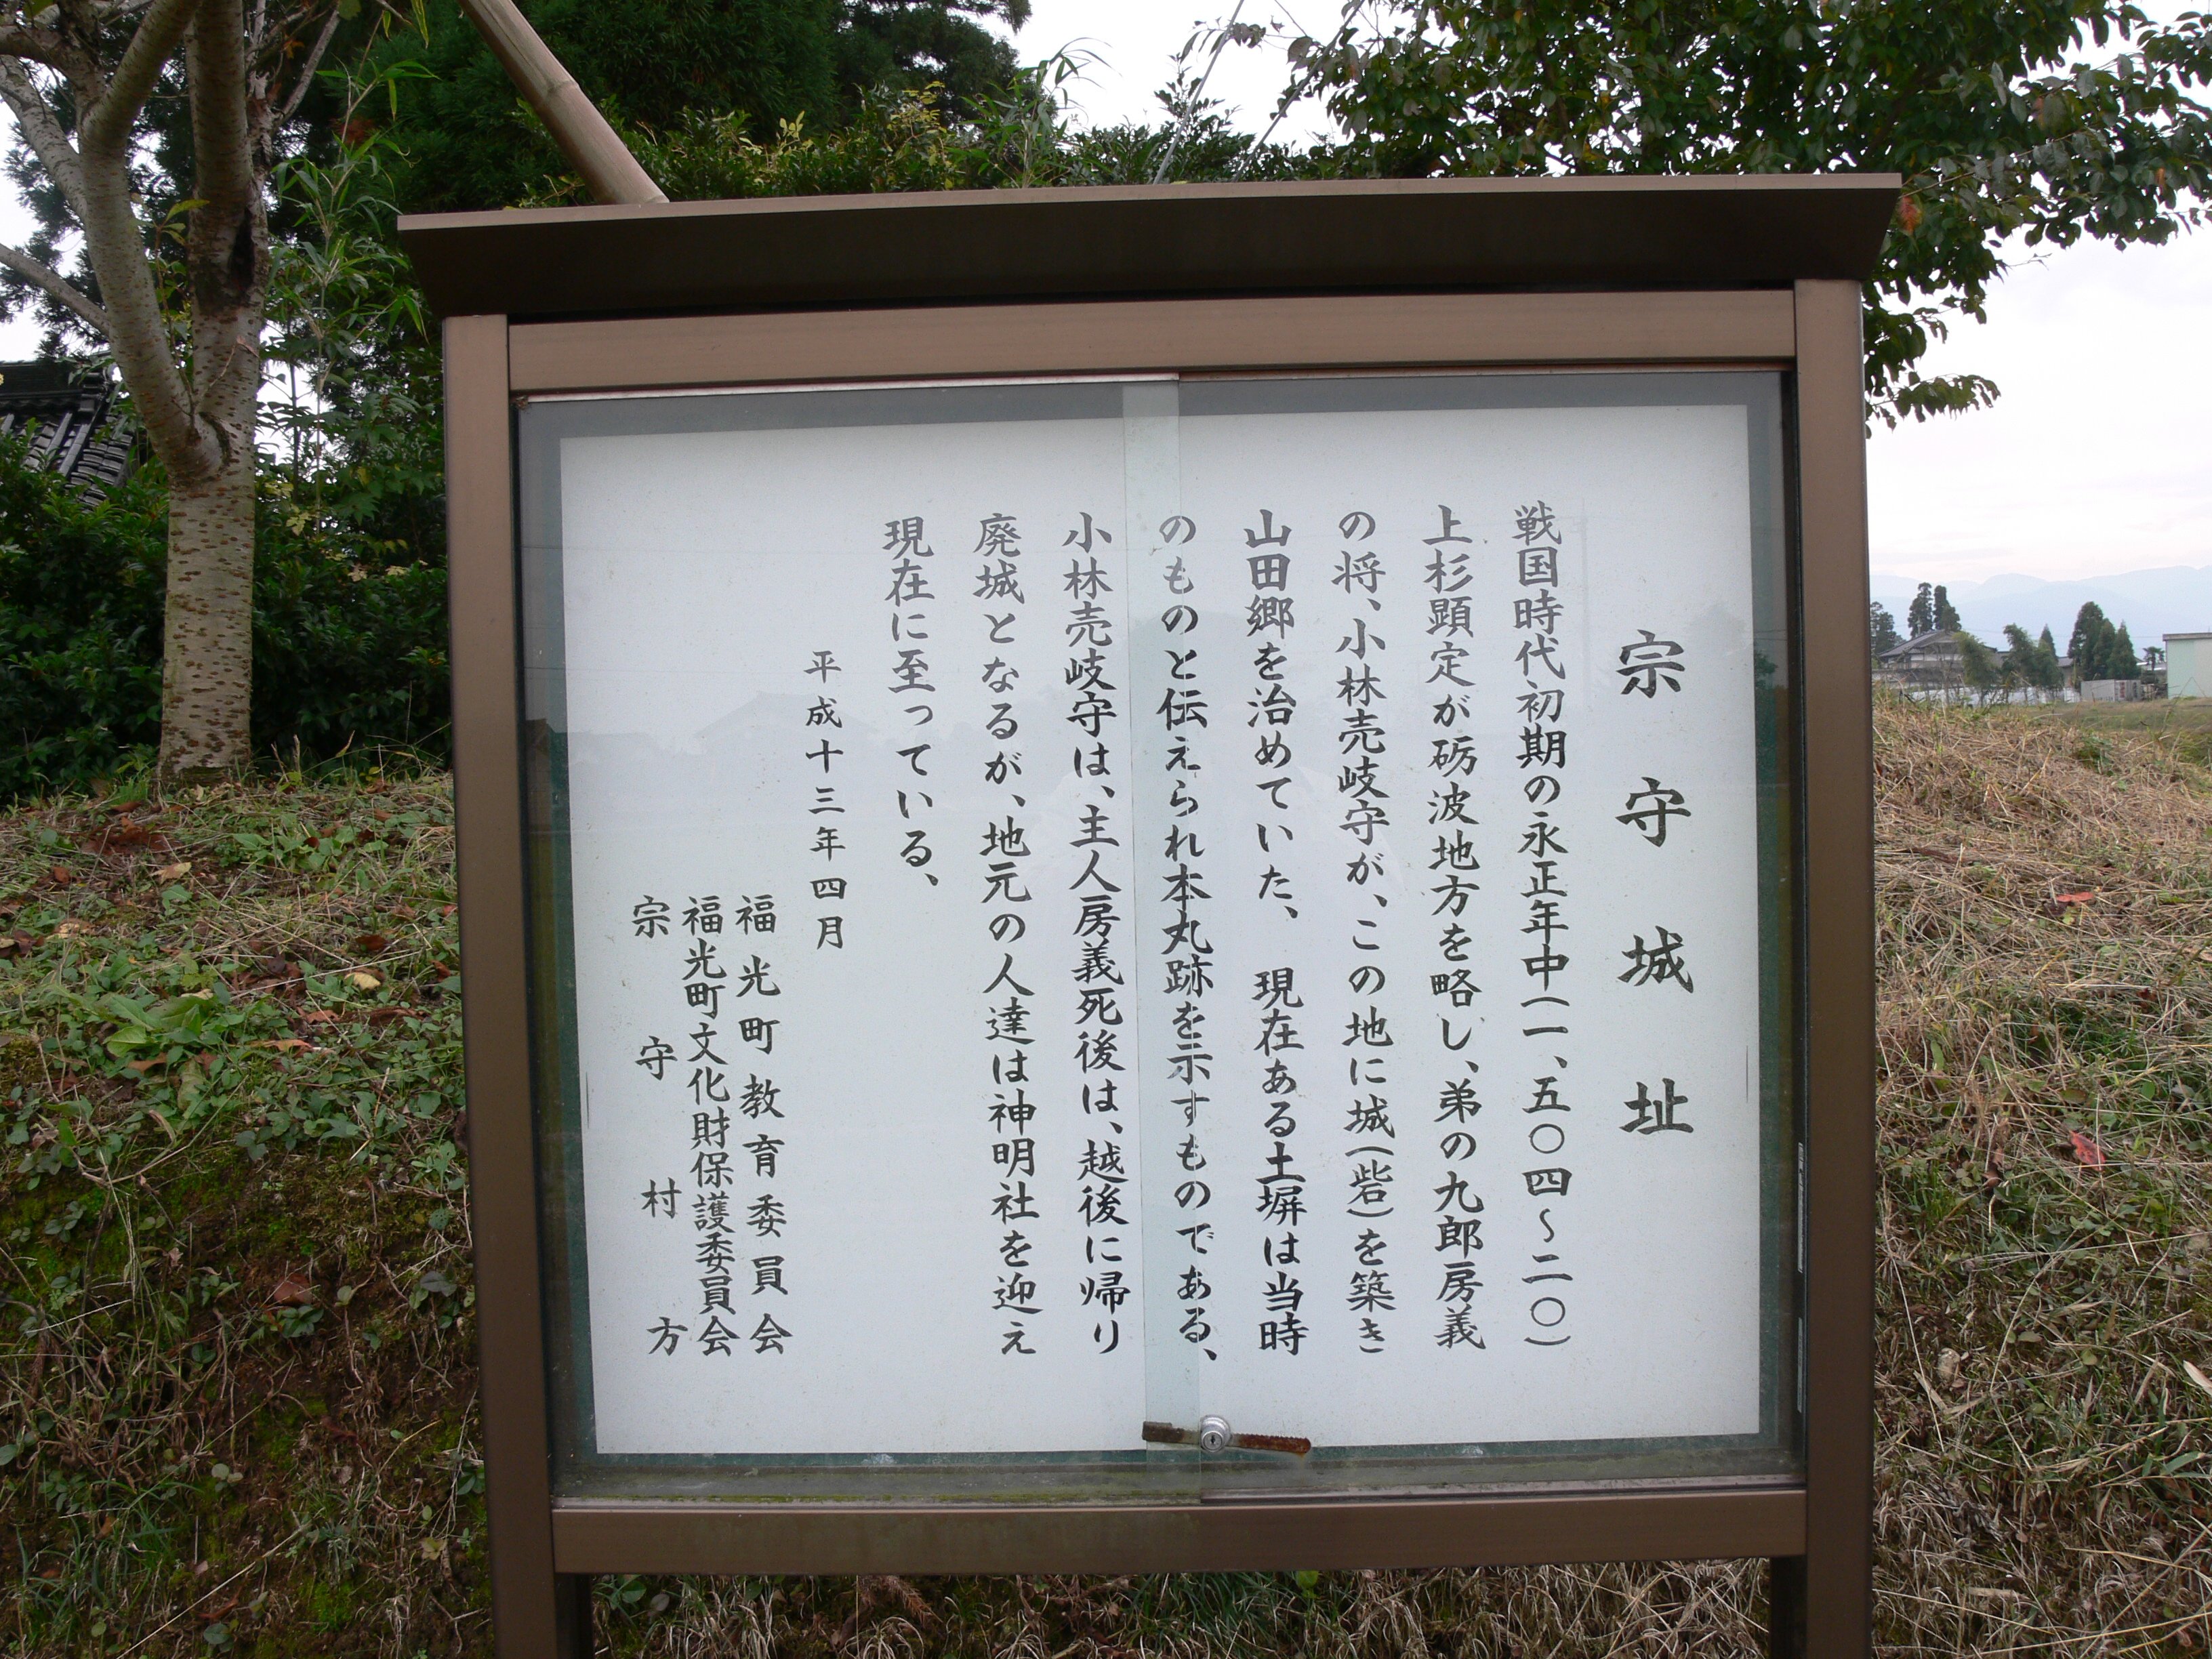 宗守城址
戦国時代初期の永正年中(一、五〇四~二〇)
上杉顕定が砺波地方を略し、弟の九郎房義
の将、小林売岐守が、この地に城(砦)を築き
山田郷を治めていた、現在ある土塀は当時
のものと伝えられ本丸跡を示すものである、
小林売岐守は、主人房義死後は、越後に帰り
廃城となるが、地元の人達は神明社を迎え
現在に至っている、
平成十三年四月
福光町教育委員会
福光町文化財保護委員会
宗守村方